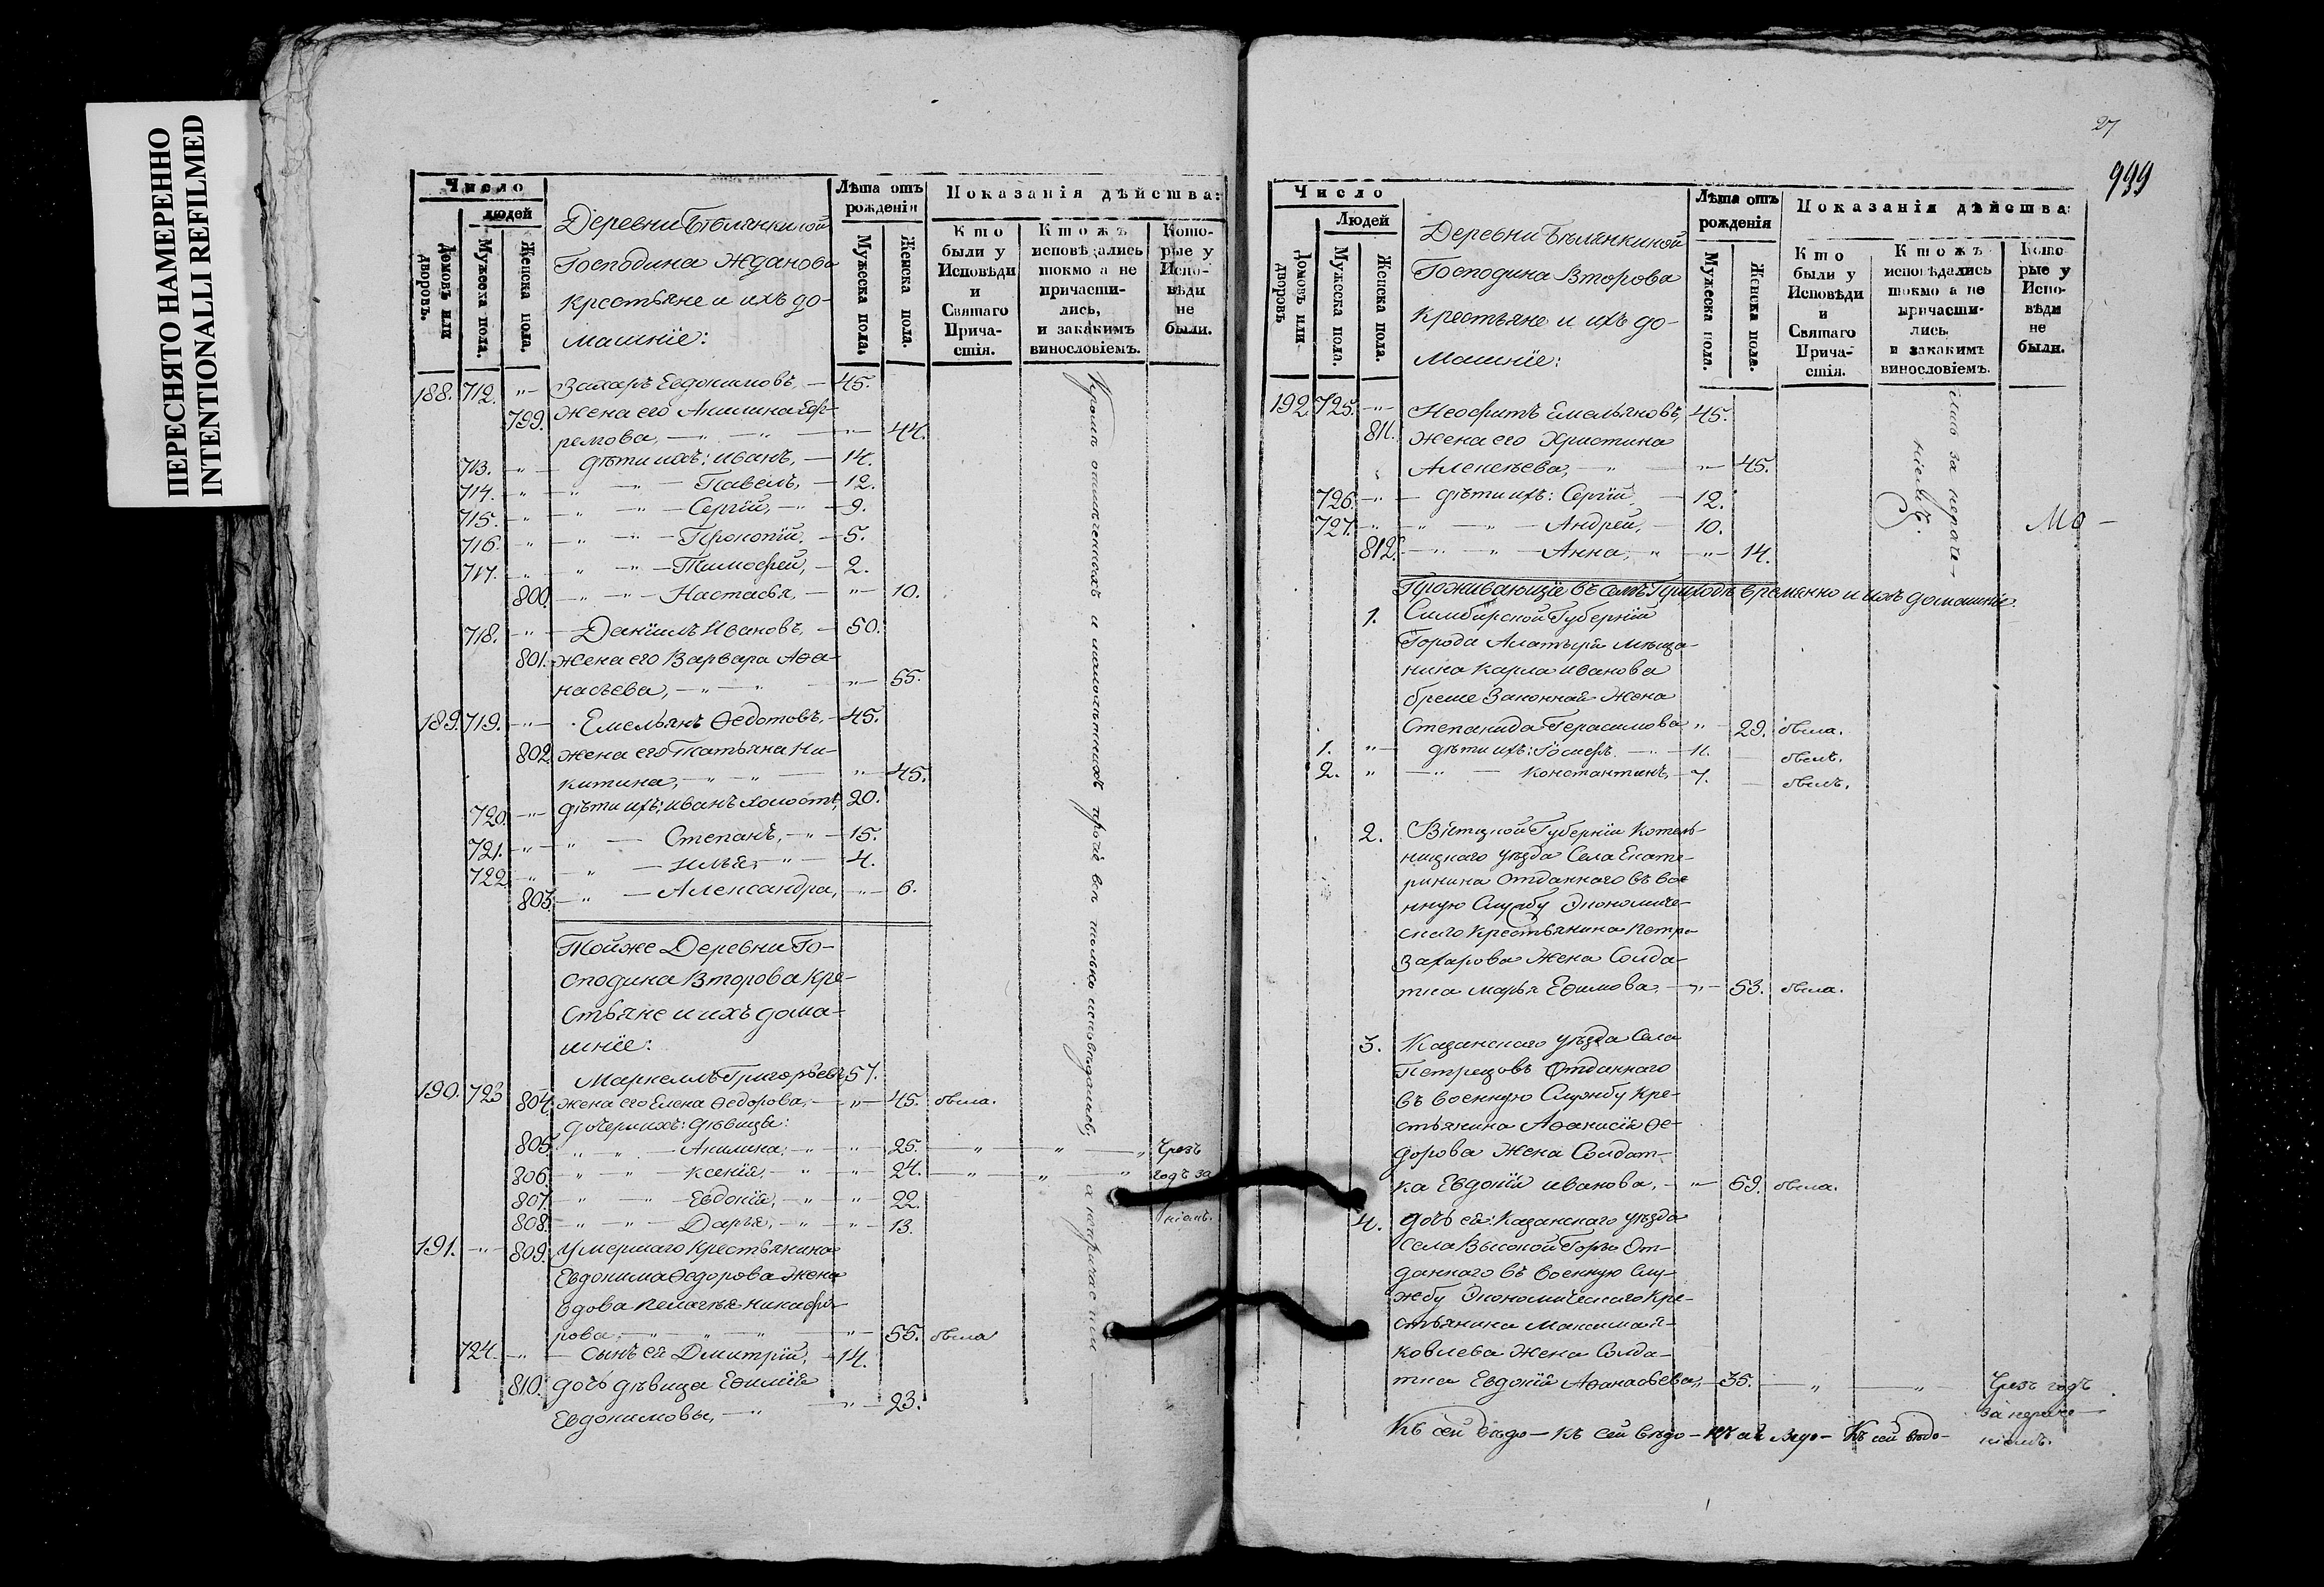 ПЕРЕСНЯТО НАМЕРЕННО
INTENTIONALLI REFILMED
Число
людей
Домовъ или дворовъ.
Мужеска пола.
Женска пола.
Деревни Бѣлянкиной
Господина Жданова
крестьяне и ихъ до-
машніе:
Лѣта отъ рожденія
Мужеска пола.
Женска пола.
Показанія дѣйства:
Кто были у Исповѣди и Святаго Прича-стія.
Ктожъ исповѣдались токмо а не причасти-лись, и закакимъ винословіемъ.
Кото-рые у Испо-вѣди не были.
188. 712. „ Захаръ Евдокимовъ, — 45.
799. жена его Акилина Ефр-
ремова, — „ — „ — „ — 44.
713. „ дѣти ихъ: Иванъ, — 14.
714. „ — „ — Павелъ, — 12.
715. „ — „ — Сергій, — 9.
716. „ — „ — Прокопій, — 5.
717. „ — „ — Тимофей, — 2.
800. „ — „ — Настасья, — „ — 10.
718. „ — Даніилъ Ивановъ, — 50.
801. жена его Варвара Аѳа-
насьева, — „ — „ — 55.
189. 719. „ Емельянъ Ѳедотовъ, — 45.
802. жена его Татьяна Ни-
китина, — „ — „ — „ — 45.
720. „ дѣти ихъ: Иванъ холостъ, 20.
721. „ — „ — Степанъ, — „ — 15.
722. „ — „ — Илья, — „ — 4.
803. „ — Александра, — „ — 6.
Тойже Деревни Го-
сподина Второва кре-
стьяне и ихъ дома-
шніе:
190. 723. Маркеллъ Григорьевъ 57.
804. жена его Елена Ѳедорова, — „ — 45. была.
дочери ихъ: дѣвицы:
805. „ „ — Акилина, — „ — „ — 25. — „ — „ — „ Чрезъ
806. „ — „ — Ксенія, — „ — „ — 24. — „ — „ — „ годъ за
807. „ — „ — Евдокія, — „ — „ — 22.
808. „ — „ — Дарья, — „ — „ — 13. ніемъ.
191. „ 809. умершаго крестьянина
Евдокима Ѳедорова жена
вдова Пелагея Никифо-
рова, — „ — „ — „ — „ — 55. была
724. „ — сынъ ея Дмитрій, — 14.
810. дочь дѣвица Еѳимія
Евдокимовы, — „ — „ — 23.
Кромѣ отмѣченныхъ и малолѣтнихъ протчіе всѣ только исповѣдались, а не причастил
27
999
Число
Людей
Домовъ или дворовъ
Мужеска пола.
Женска пола.
Деревни Бѣлянкиной
Господина Второва
крестьяне и ихъ до-
машніе:
Лѣта отъ рожденія
Мужеска пола.
Женска пола.
Показанія дѣйства:
Кто были у Исповѣди и Святаго Прича-стія.
Ктожъ исповѣдались токмо а не причасти-лись. и закакимъ винословіемъ.
Кото-рые у Испо-вѣди не были.
192 725. „ Неофитъ Емельяновъ, 45.
811. жена его Христина
Алексѣева, — „ — „ — 45.
726. „ — дѣти ихъ: Сергій — 12.
727. „ — „ — „ — Андрей, — 10.
812. „ — „ — Анна, — „ — „ — 14.
ись за нераче-
ніемъ.
Мо —
Проживающіе въ семъ Приходѣ временно и ихъ домашніе.
1. Симбирской Губерніи
Города Алатыря мѣща-
нина Карла Иванова
законная жена
Степанида Герасимова „ — 29. была.
1. „ дѣти ихъ: Іосифъ — „ — 11. — былъ.
2. „ — „ — Константинъ, — 7. — былъ.
2. Вятцкой Губерніи Котель-
ницкаго уѣзда Села Екате-
ринина Отданнаго въ вое
нную Службу Экономиче-
скаго крестьянина Петра
Захарова жена Солда-
тка Марья Еѳимова, — „ — 53. была.
3. Казанскаго уѣзда Села
Петрецовъ Отданнаго
въ военную Службу кре-
стьянина Аѳанасія Ѳе-
дорова жена Солдат-
ка Евдокія Иванова, — „ — 69. была.
4. дочь ея: Казанскаго уѣзда
села Высокой Горы От-
даннаго въ военную слу-
жбу Экономическаго кре-
стьянина Максима Я-
ковлева жена Солда-
тка Евдокія Аѳанасьева, — 35. — „ — „ — Чрезъ годъ
за нераче-
ніемъ.
Къ сей вѣдо — къ сей вѣдо — къ сей вѣдо — Къ сей вѣдо-